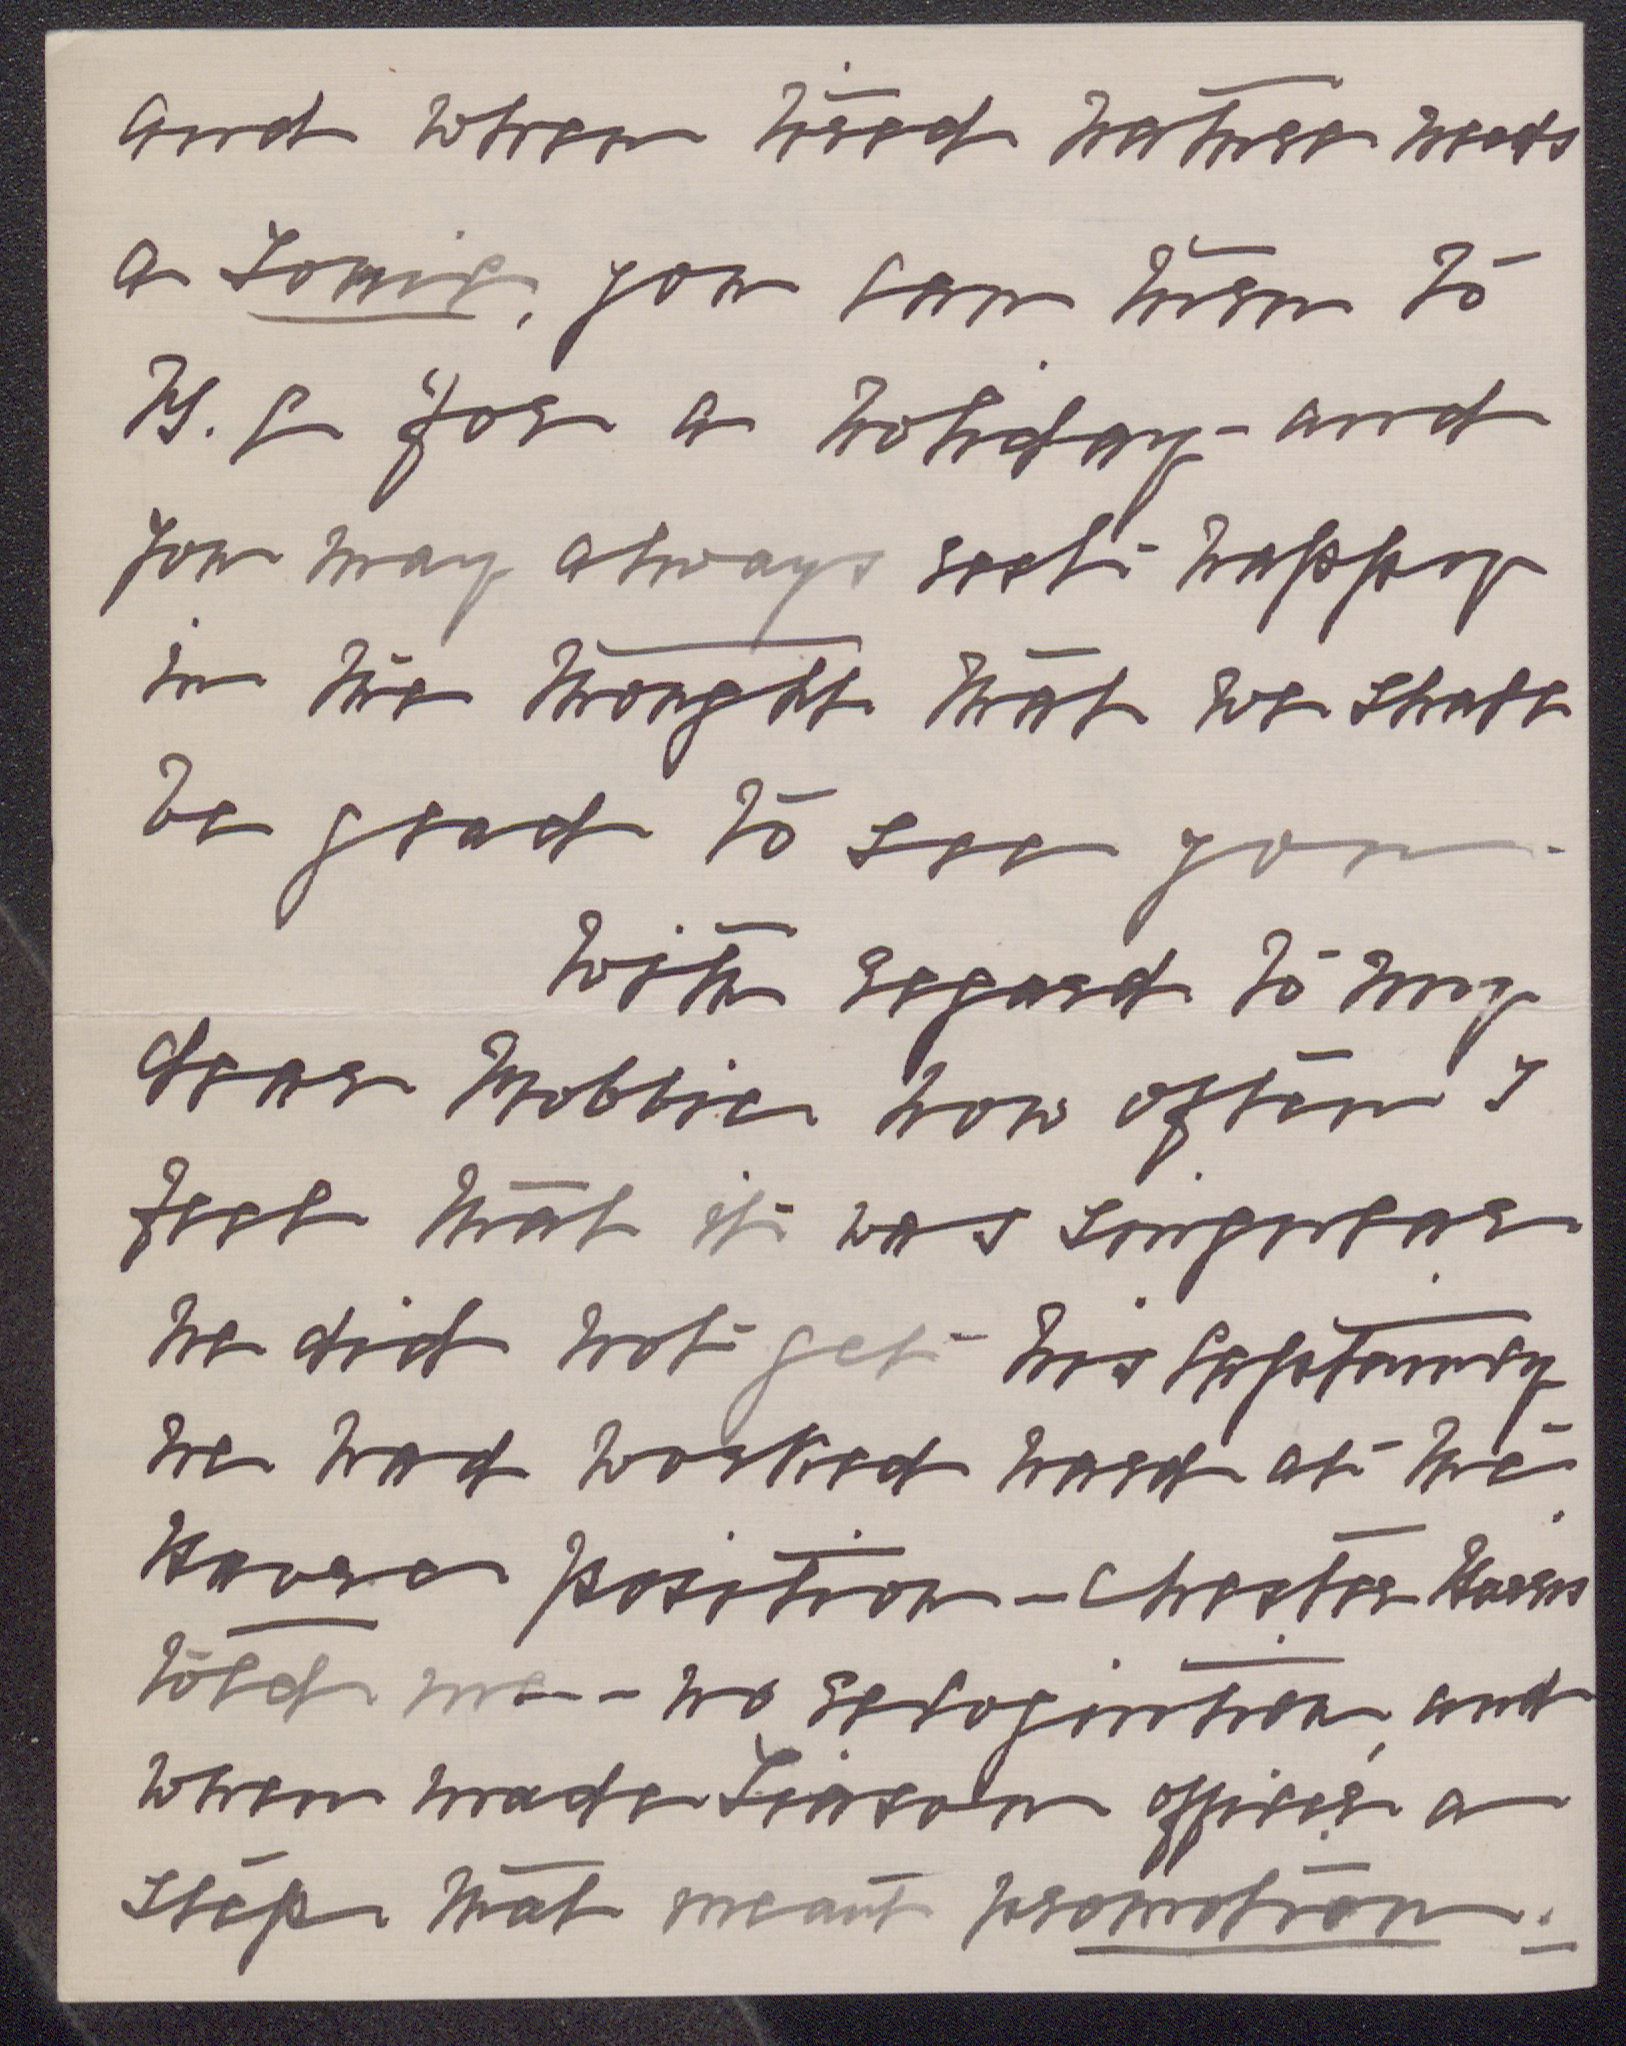 and when tired nature needs
a Tonic, you can turn to
B. C for a holiday - and
you may always rest happy
in the thought that we shall
be glad to see you -
With regard to my
dear Mobbie how often I
feel that it was singular
he did not get his Captaincy
he had worked hard at the
Havre position - Chester Harris
told me - - no recognition, and
when made Liason officer a
step that meant promotion.